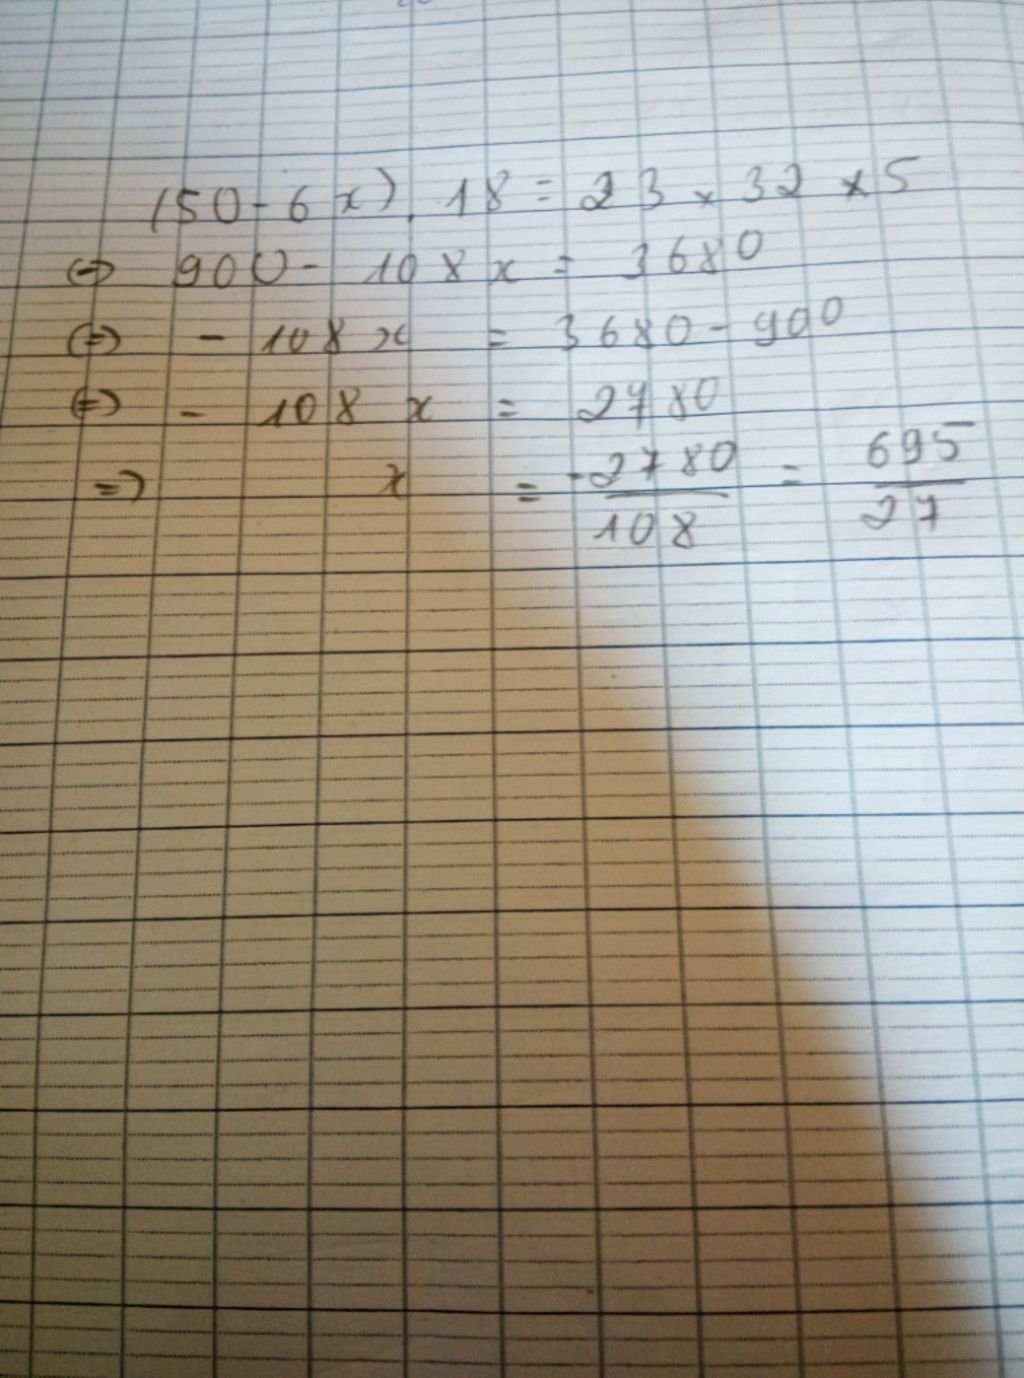 (50-6x).18 = 23 x 32 x 5
⇔ 900 - 108x = 3680
⇔ - 108x = 3680 - 900
⇔ - 108x = 2780
⇒ x = -2780/108 = 695/27